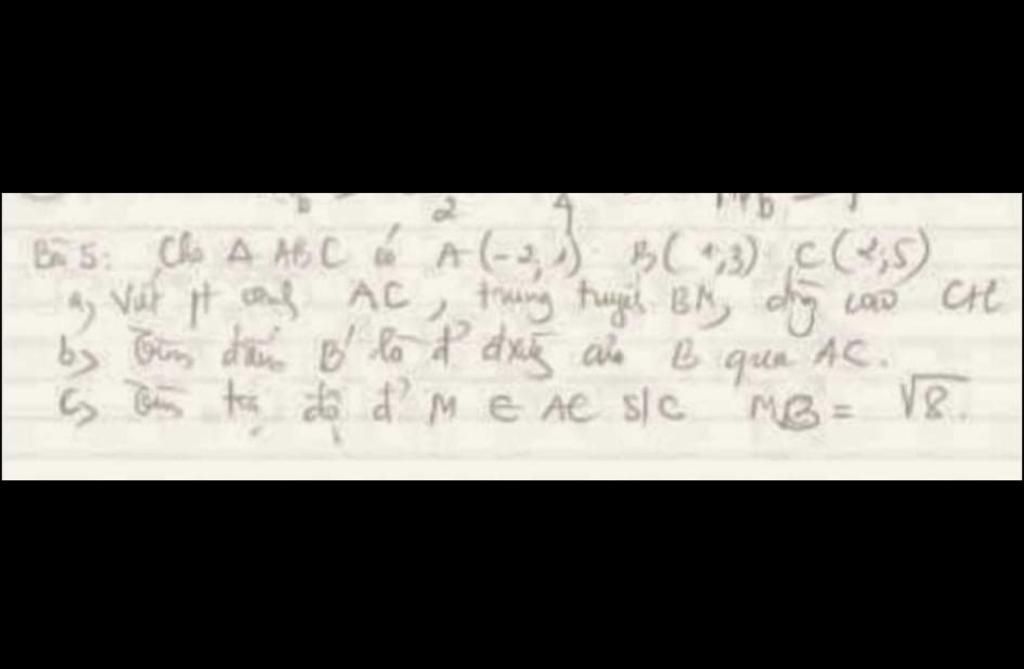 Bài 5: Cho Δ ABC có A(-2,1) B(1,3) C(2,5)
a, Viết pt cạnh AC, trung tuyến BM, đg cao CH
b, Tìm điểm B' là đ' đxứng của B qua AC.
c, Tìm tọa độ đ' M ∈ AC s/c MB = √8.